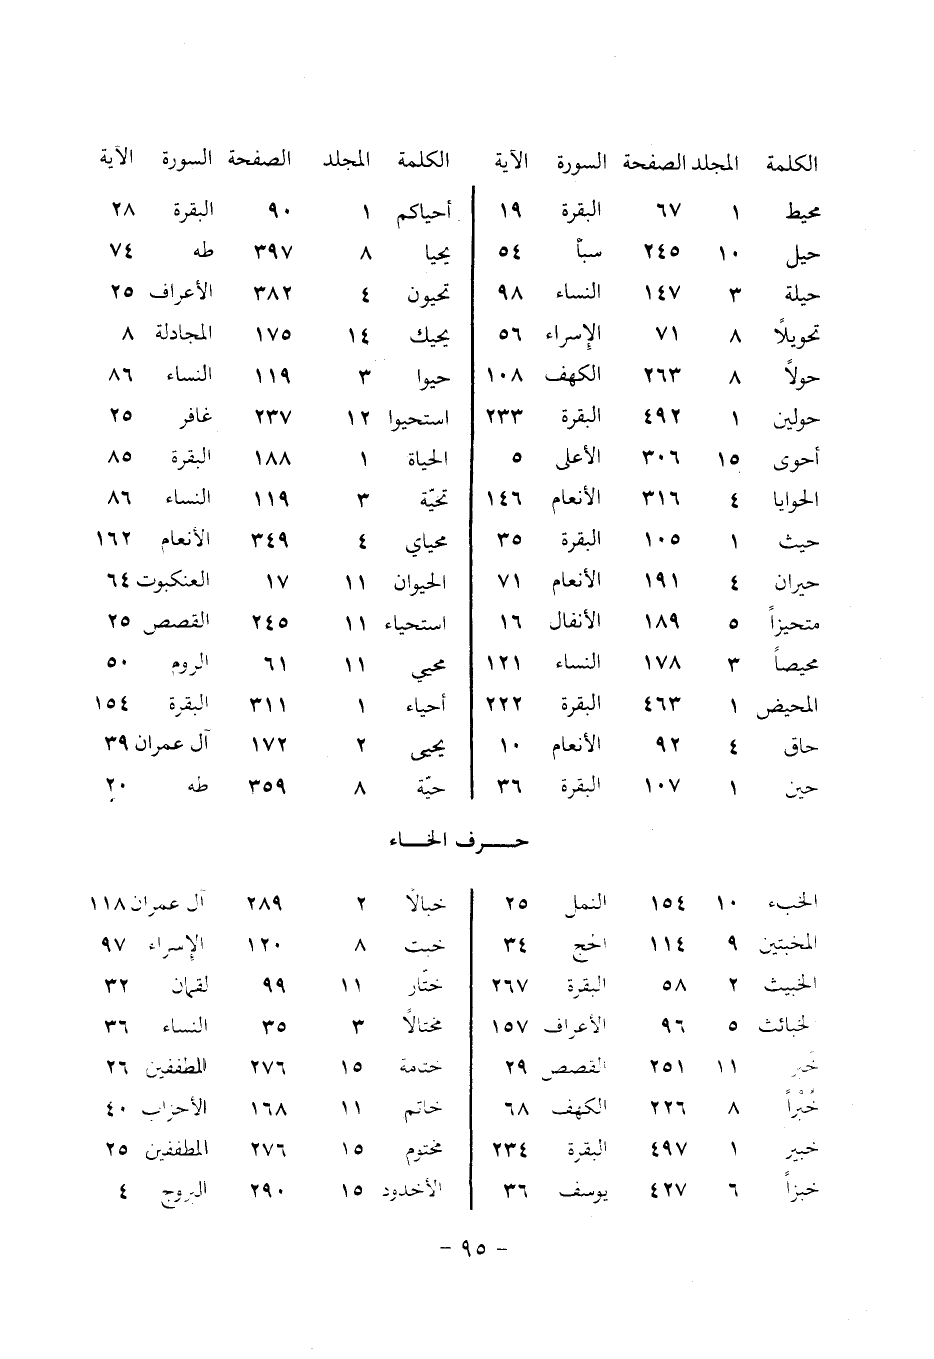 الكلمة المجلد الصفحة السورة الآية
محيط ١ ٦٧ البقرة ١٩
حيل ١٠ ٢٤٥ سبأ ٥٤
حيلة ٣ ١٤٧ النساء ٩٨
تحويلاً ٨ ٧١ الإسراء ٥٦
حولاً ٨ ٢٦٣ الكهف ١٠٨
حولين ١ ٤٩٢ البقرة ٢٣٣
أحوى ١٥ ٣٠٦ الأعلى ٥
الحوايا ٤ ٣١٦ الأنعام ١٤٦
حيث ١ ١٠٥ البقرة ٣٥
حيران ٤ ١٩١ الأنعام ٧١
متحيزاً ٥ ١٨٩ الأنفال ١٦
محيصاً ٣ ١٧٨ النساء ١٢١
المحيض ١ ٤٦٣ البقرة ٢٢٢
حاق ٤ ٩٢ الأنعام ١٠
حين ١ ١٠٧ البقرة ٣٦
الكلمة المجلد الصفحة السورة الآية
أحياكم ١ ٩٠ البقرة ٢٨
يحيا ٨ ٣٩٧ طه ٧٤
تحيون ٤ ٣٨٢ الأعراف ٢٥
يحيك ١٤ ١٧٥ المجادلة ٨
حيوا ٣ ١١٩ النساء ٨٦
استحيوا ١٢ ٢٣٧ غافر ٢٥
الحياة ١ ١٨٨ البقرة ٨٥
تحيّة ٣ ١١٩ النساء ٨٦
محياي ٤ ٣٤٩ الأنعام ١٦٢
الحيوان ١١ ١٧ العنكبوت ٦٤
استحياء ١١ ٢٤٥ القصص ٢٥
محيي ١١ ٦١ الروم ٥٠
أحياء ١ ٣١١ البقرة ١٥٤
يحيى ٢ ١٧٢ آل عمران ٣٩
حيّة ٨ ٣٥٩ طه ٢٠
حرف الخاء
الخبء ١٠ ١٥٤ النمل ٢٥
المخبتين ٩ ١١٤ الحج ٣٤
الخبيث ٢ ٥٨ البقرة ٢٦٧
لخبائث ٥ ٩٦ الأعراف ١٥٧
خبر ١١ ٢٥١ القصص ٢٩
خُبْراً ٨ ٢٢٦ الكهف ٦٨
خبير ١ ٤٩٧ البقرة ٢٣٤
خبزاً ٦ ٤٢٧ يوسف ٣٦
خبالاً ٢ ٢٨٩ آل عمران ١١٨
خبت ٨ ١٢٠ الإسراء ٩٧
ختّار ١١ ٩٩ لقمان ٣٢
مختالاً ٣ ٣٥ النساء ٣٦
ختمة ١٥ ٢٧٦ المطففين ٢٦
خاتم ١١ ١٦٨ الأحزاب ٤٠
مختوم ١٥ ٢٧٦ المطففين ٢٥
الأخدود ١٥ ٢٩٠ البروج ٤
- ٩٥ -